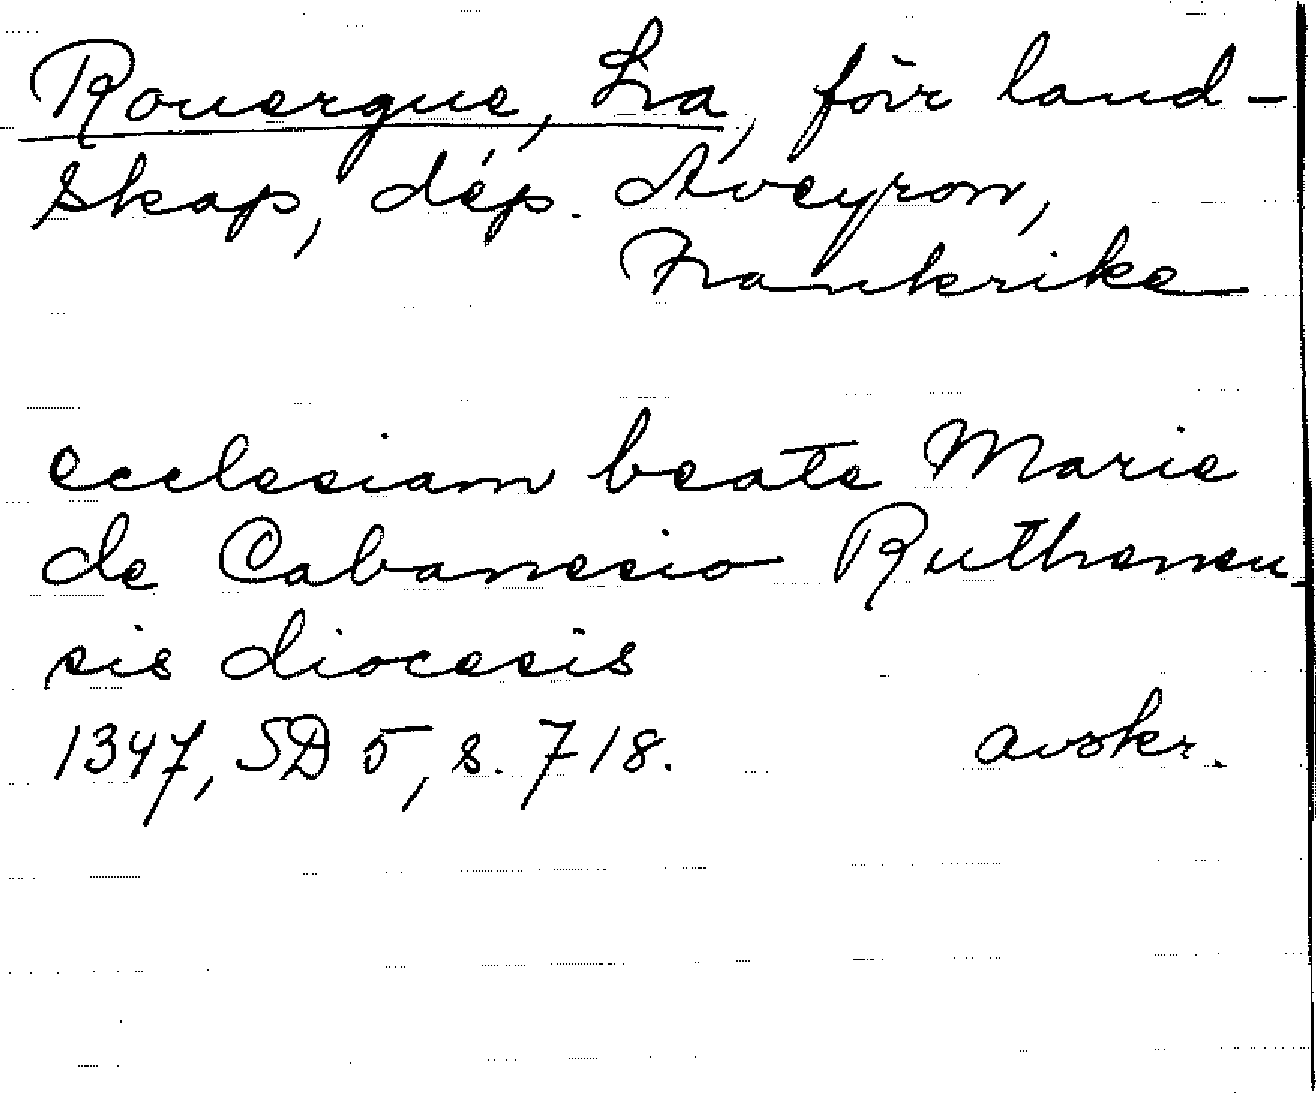 Rouergue, La, förr land-
skap, dép. Aveyron,
Frankrike
ecclesiam beate Marie
de Cabanesio Ruthenen-
sis diocesis
1347, SD 5, s. 718. avskr.